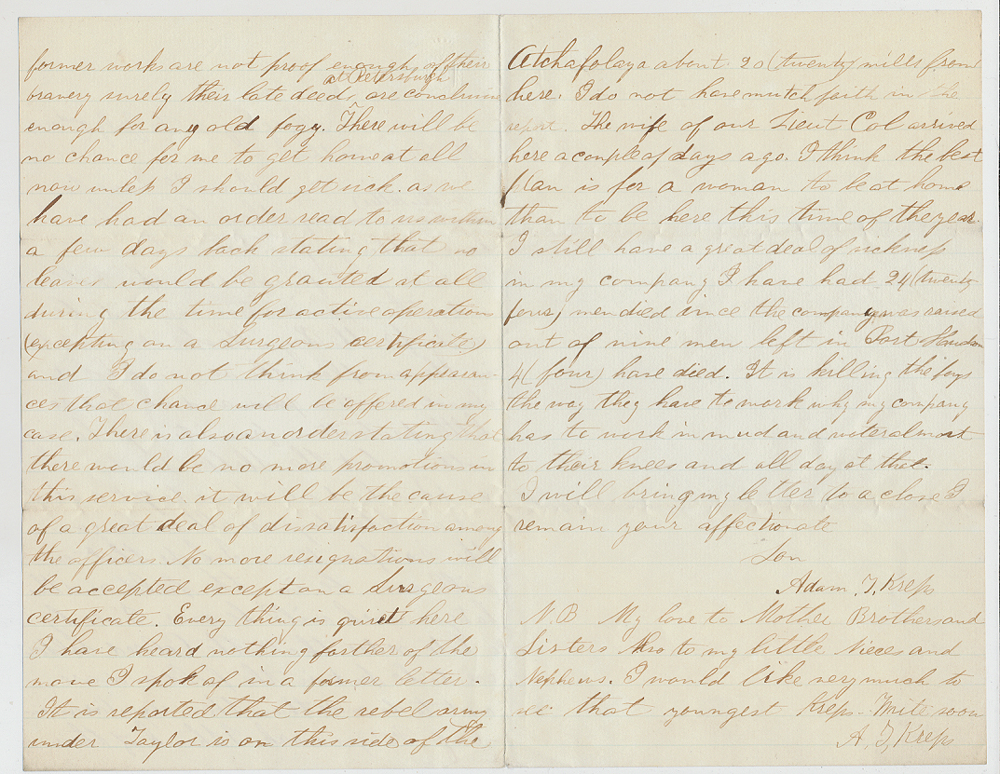 former works are not proof enough of their
at Petersburgh
bravery surely their late deeds are conclusive
enough for any old fogy. There will be
no chance for me to get home at all
now unless I should get sick. as we
have had an order read to us within
a few days back stating that no
leaves would be granted at all
during the time for active operation
(excepting on a Surgeons certificate)
and I do not think from appearan-
ces that chance will be offered in my
case. There is also an order stating that
there would be no more promotions in
this service. it will be the cause
of a great deal of dissatisfaction among
the officers. No more resignations will
be accepted except on a Surgeons
certificate. Every thing is quiet here
I have heard nothing farther of the
move I spok of in a former letter.
It is reported that the rebel army
under Taylor is on this side of the
Atchafolaya about 20 (twenty) mills from
here. I do not have mutch faith in the
report. The wife of our Lieut Col arrived
here a couple of days ago. I think the best
plan is for a woman to be at home
than to be here this time of the year.
I still have a great deal of sickness
in my company I have had 24 (twenty
four) men died since the company was raised
out of nine men left in Port Hudson
4 (four) have died. It is killing the boys
the way they have to work why my company
has to work in mud and water almost
to their knees and all day at that.
I will bring my letter to a close I
remain your affectionate
Son
Adam. T. Kreps
N.B My love to Mother Brothers and
Sisters Also to my little Nieces and
Nephews. I would like very much to
see that youngest Kreps. Write soon
A. T. Kreps